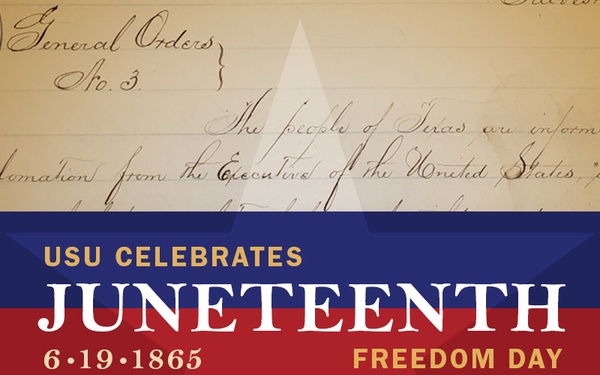 General Orders
No. 3.
The people of Texas are inform
lamation from the Executive of the United States,
USU CELEBRATES
JUNETEENTH
6•19•1865 FREEDOM DAY